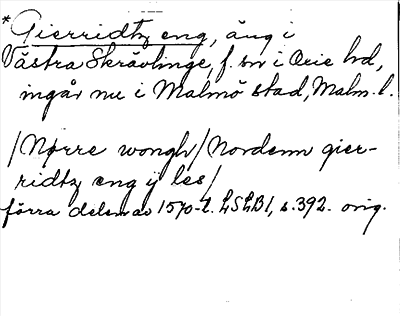 *Gierridtz eng, äng i
Västra Skrävlinge, f. sn i Oxie hd,
ingår nu i Malmö stad, Malm. l.
/Nørre wongh/Nordenn gier-
ridtz eng ij les/
förra delen av 1570-t. LSLB1, s.392. orig.